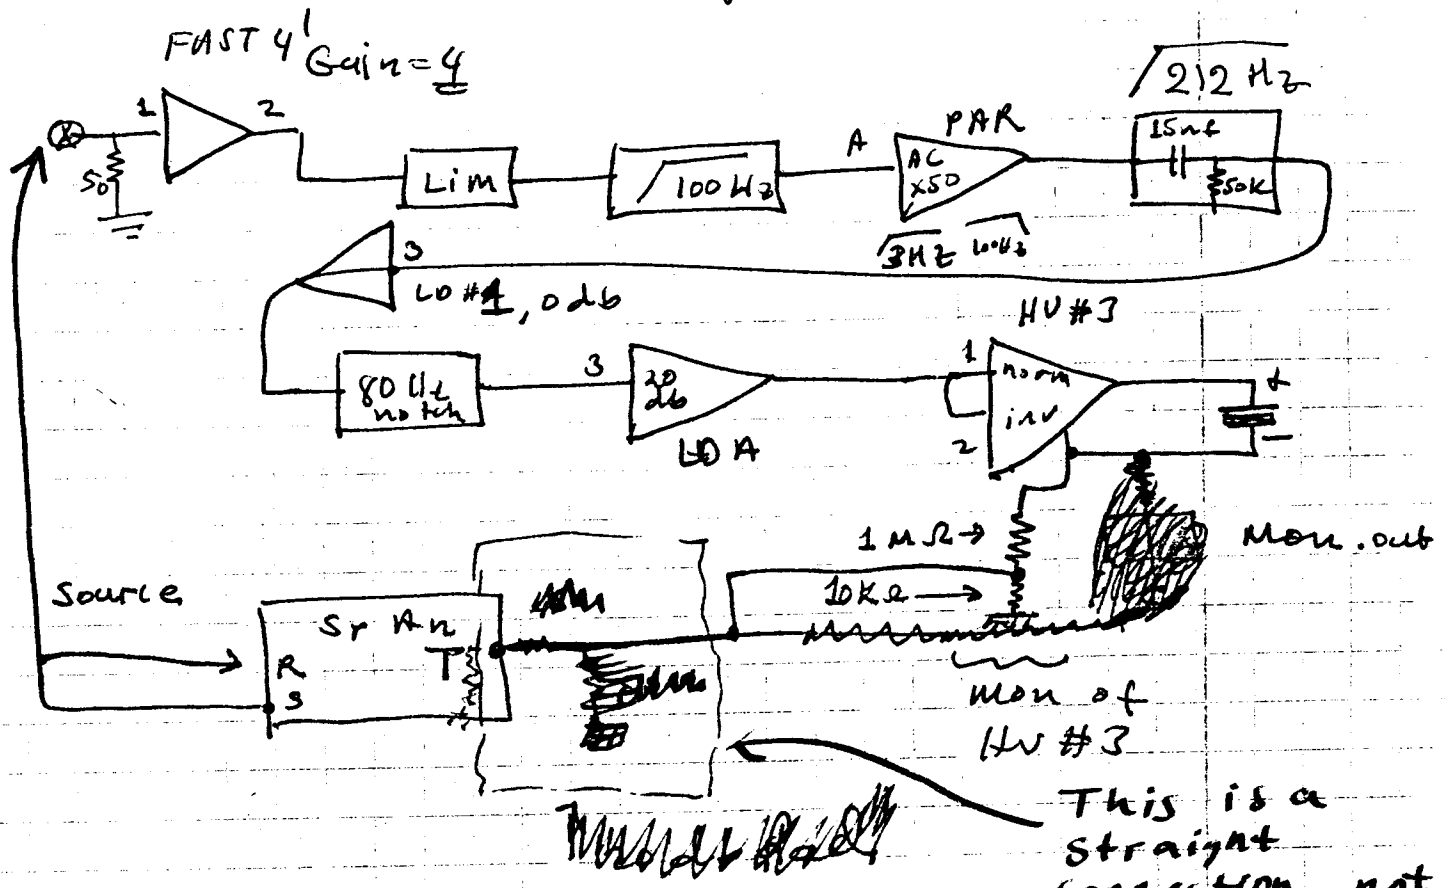 FAST 4' Gain = 4
212 Hz
1
2
50
Lim
100 Hz
A
PAR
AC
x50
15nf
50K
3HZ 100Hz
3
LD #1, 0 db
HV #3
80 Hz
notch
3
20
db
LD A
1
norm
inv
2
+
−
1 M Ω →
Mon. out
10K Ω →
Source
Sr An
T
R
S
mon of
HV #3
This is a
straight
not